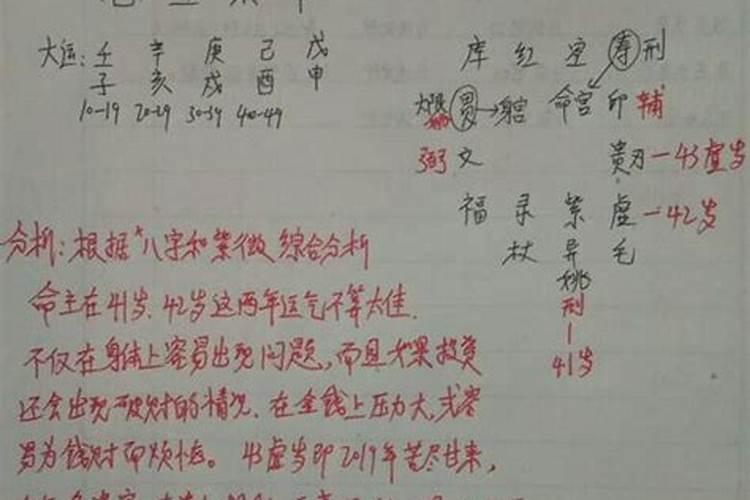 大运: 壬 辛 庚 己 戊
子 亥 戌 酉 申
10-19 20-29 30-39 40-49
库 红 空 寿 刑
大限 昌→ 身宫 命宫 印 辅
弼 文 贵刃-43虚岁
福 录 紫 虚-42岁
杖 异 毛
姚
刑
41岁
分析: 根据八字和紫微综合分析
命主在41岁、42岁这两年运气不算太佳.
不仅在身体上容易出现问题,而且如果投资
还会出现破财的情况、在金钱上压力大,或容
易为钱财而烦恼。43虚岁即2019年苦尽甘来,